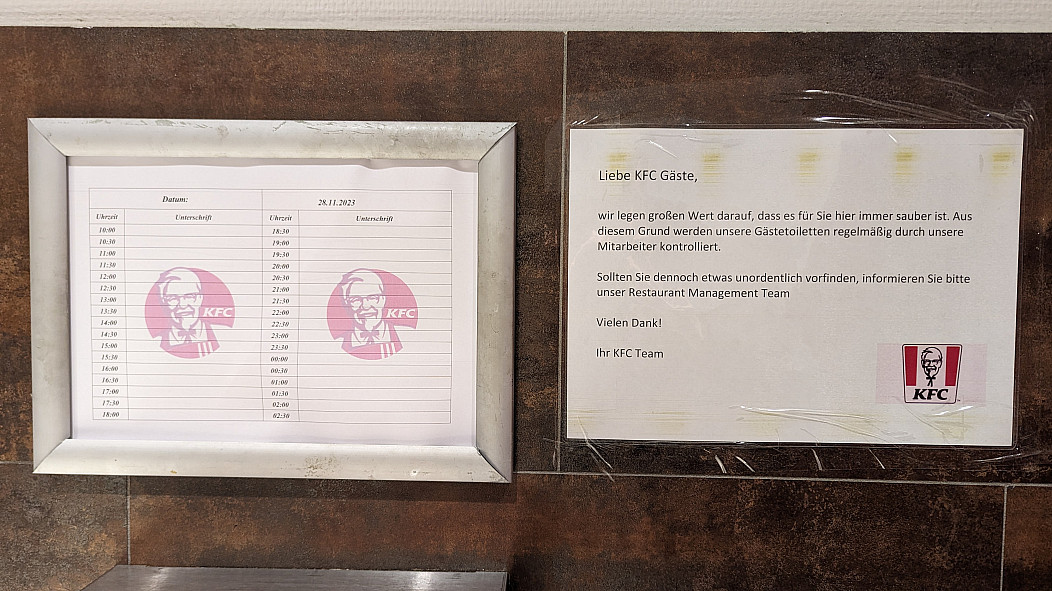 Datum: 28.11.2023
Uhrzeit Unterschrift Uhrzeit Unterschrift
10:00 18:30
10:30 19:00
11:00 19:30
11:30 20:00
12:00 20:30
12:30 21:00
13:00 21:30
13:30 22:00
14:00 22:30
14:30 23:00
15:00 23:30
15:30 00:00
16:00 00:30
16:30 01:00
17:00 01:30
17:30 02:00
18:00 02:30
KFC KFC
Liebe KFC Gäste,
wir legen großen Wert darauf, dass es für Sie hier immer sauber ist. Aus
diesem Grund werden unsere Gästetoiletten regelmäßig durch unsere
Mitarbeiter kontrolliert.
Sollten Sie dennoch etwas unordentlich vorfinden, informieren Sie bitte
unser Restaurant Management Team
Vielen Dank!
Ihr KFC Team
KFC